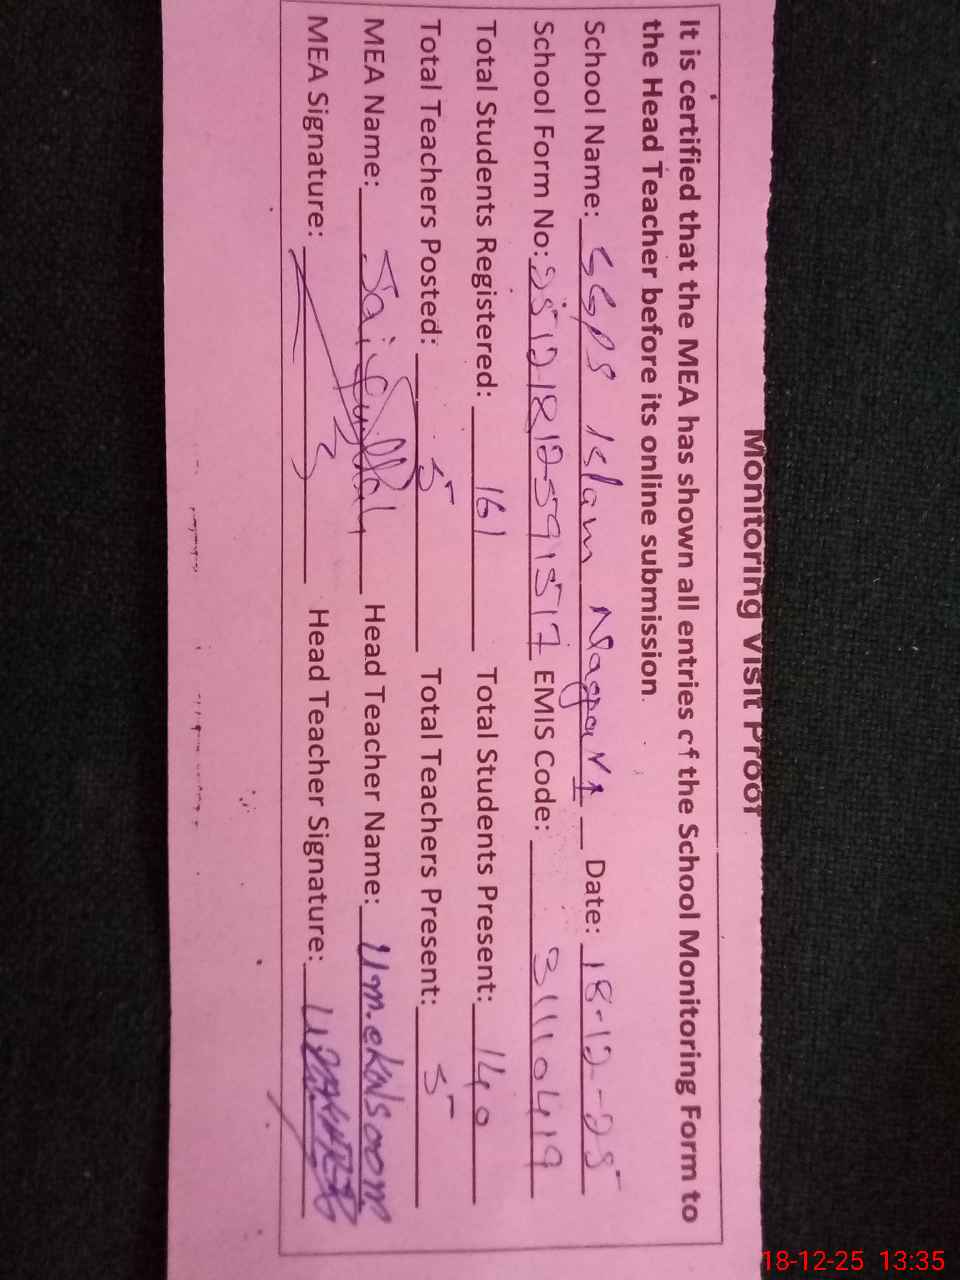 Monitoring Visit Proof
It is certified that the MEA has shown all entries of the School Monitoring Form to
the Head Teacher before its online submission.
School Name: GGPS Islam Nagpar 1 Date: 18-12-25
School Form No: 25121812591517 EMIS Code: 31110419
Total Students Registered: 161 Total Students Present: 140
Total Teachers Posted: 5 Total Teachers Present: 5
MEA Name: Head Teacher Name: Um.ekalsoom
MEA Signature: Head Teacher Signature:
18-12-25 13:35